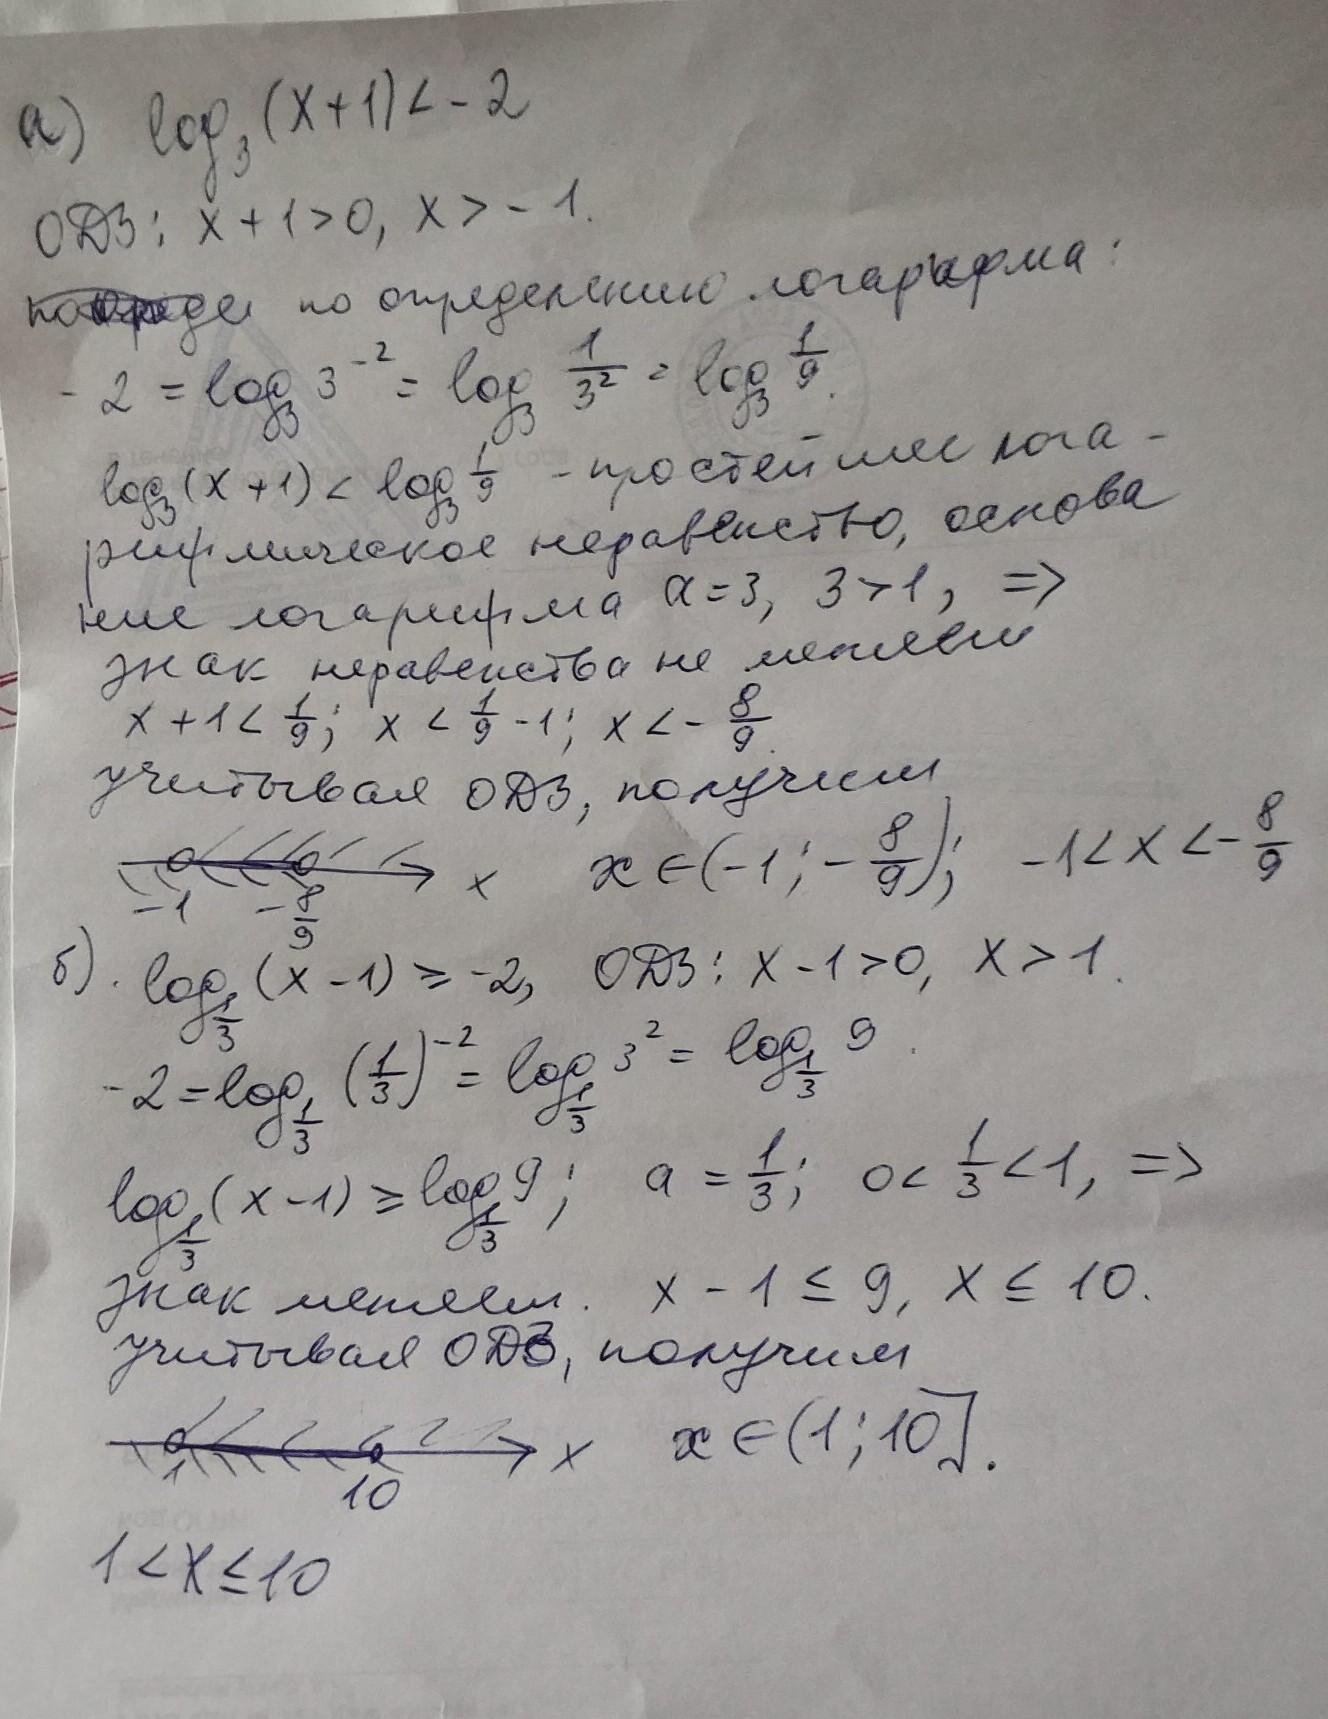 а) log₃(x+1) < -2
ОДЗ: x+1>0, x>-1.
по определению логарифма:
-2 = log₃ 3⁻² = log₃ 1/3² = log₃ 1/9.
log₃(x+1) < log₃ 1/9 - простейшее лога-
рифмическое неравенство, основа
ние логарифма a=3, 3>1, =>
знак неравенства не меняем
x+1 < 1/9; x < 1/9 -1; x < -8/9.
учитывая ОДЗ, получим
-1 -8/9 x x∈(-1; -8/9); -1<x<-8/9
б). log_{1/3}(x-1) ≥ -2, ОДЗ: x-1>0, x>1.
-2 = log_{1/3} (1/3)⁻² = log_{1/3} 3² = log_{1/3} 9.
log_{1/3}(x-1) ≥ log_{1/3} 9; a = 1/3; 0< 1/3 <1, =>
знак меняем. x-1 ≤ 9, x ≤ 10.
учитывая ОДЗ, получим
1 10 x x∈(1; 10].
1<x≤10